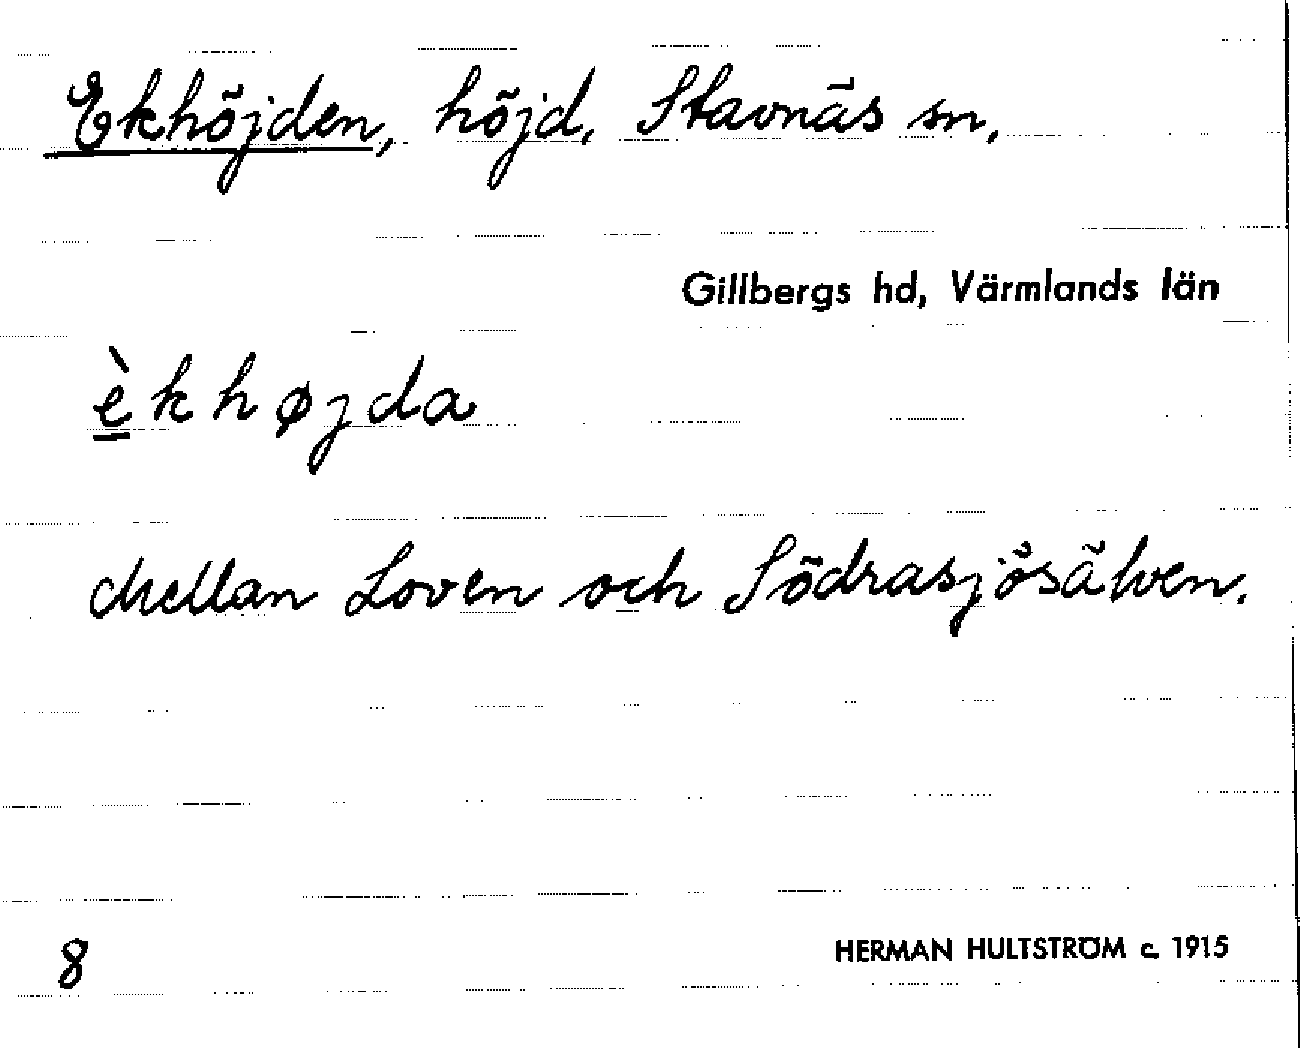 Ekhöjden, höjd, Stavnäs sn,
Gillbergs hd, Värmlands län
è̲khøjda
Mellan Loven och Södrasjösälven.
8
HERMAN HULTSTRÖM c. 1915